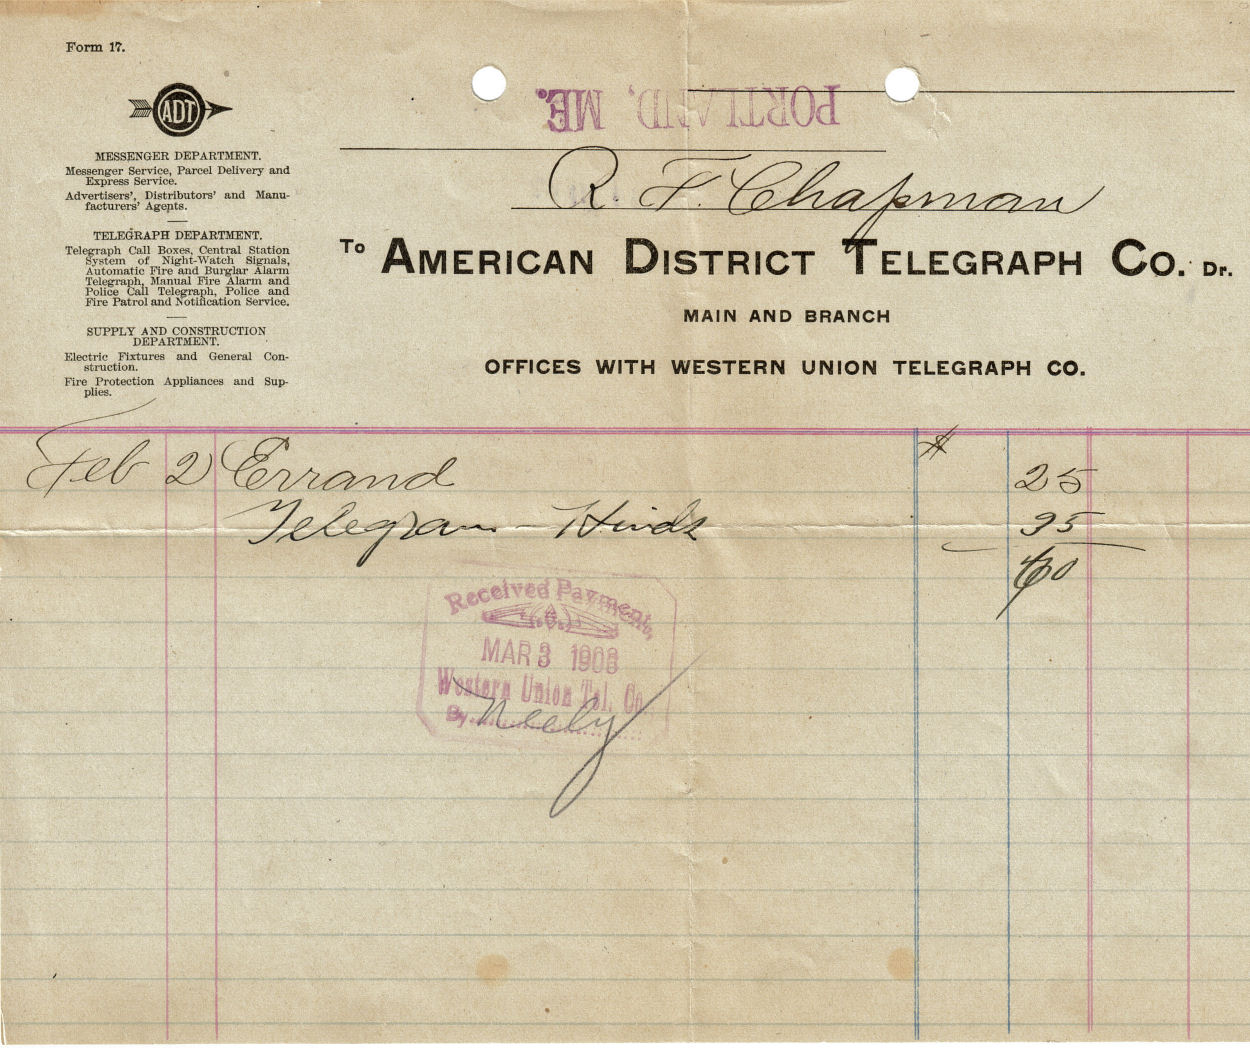 Form 17.
ADT
MESSENGER DEPARTMENT.
Messenger Service, Parcel Delivery and
Express Service.
Advertisers', Distributors' and Manu-
facturers' Agents.
TELEGRAPH DEPARTMENT.
Telegraph Call Boxes, Central Station
System of Night-Watch Signals,
Automatic Fire and Burglar Alarm
Telegraph, Manual Fire Alarm and
Police Call Telegraph, Police and
Fire Patrol and Notification Service.
SUPPLY AND CONSTRUCTION
DEPARTMENT.
Electric Fixtures and General Con-
struction.
Fire Protection Appliances and Sup-
plies.
PORTLAND, ME.
R. F. Chapman
To AMERICAN DISTRICT TELEGRAPH CO. Dr.
MAIN AND BRANCH
OFFICES WITH WESTERN UNION TELEGRAPH CO.
Feb 2 Errand $ 25
Telegram - Hinds 35
60
Received Payment,
MAR 3 1908
Western Union Tel. Co.
By Neely